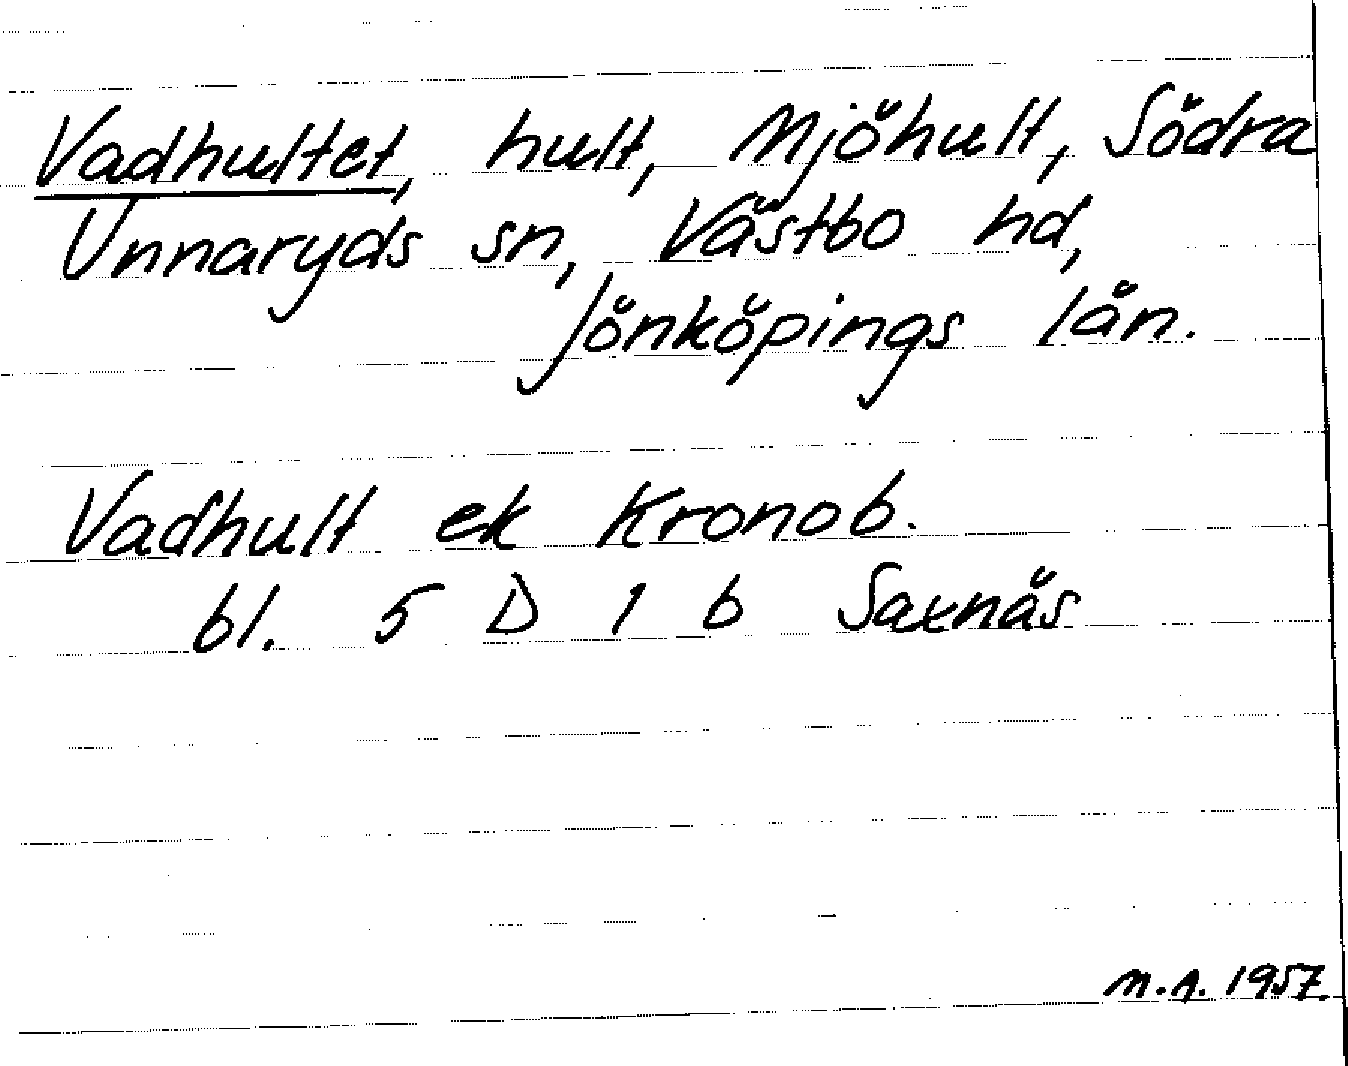 Vadhultet, hult, Mjöhult, Södra
Unnaryds sn, Västbo hd,
Jönköpings län.
Vadhult ek Kronob.
bl. 5 D 1 b Saxnäs
M.A. 1957.